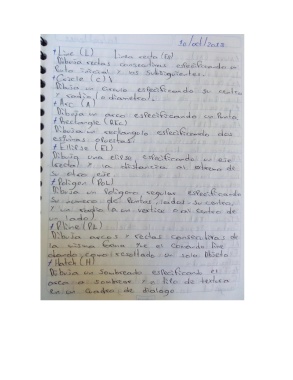 30/oct/2023
* Line (L) Linea recta
Dibuja rectas consecutivas especificando
punto inicial y los subsiguientes.
* Circle (C)
Dibuja un circulo especificando su centro
y radio (o diametro).
* Arc (A)
Dibuja un arco especificando un punto
* Rectangle (REC)
Dibuja un rectangulo especificando dos
esquinas opuestas.
* Ellipse (EL)
Dibuja una elipse especificando un eje
y la distancia al extremo de
su otro eje.
* Poligon (POL)
Dibuja un poligono regular especificando
su numero de lados, su centro,
y un radio (a un vertice o al centro de
un lado)
* Pline (PL)
Dibuja arcos y rectas consecutivas de
la misma forma que el comando line
dando como resultado un solo objeto
* Hatch (H)
Dibuja un sombreado especificando el
area a sombrear y el tipo de textura
en un cuadro de dialogo